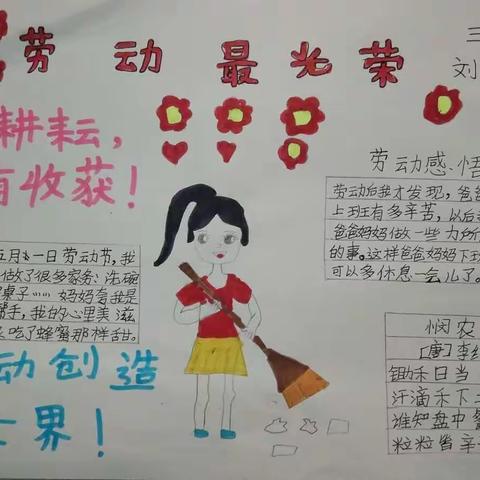 劳动最光荣
三
刘
耕耘，
有收获！
劳动感悟
劳动后我才发现，爸爸
上班有多辛苦，以后
爸爸妈妈做一些力所
的事。这样爸爸妈妈下班
可以多休息一会儿了。
五月一日劳动节，我
做了很多家务：洗碗
桌子……妈妈夸我是
手，我的心里美滋
吃了蜂蜜那样甜。
动创造
世界！
悯农
［唐］李绅
锄禾日当
汗滴禾下
谁知盘中
粒粒皆辛